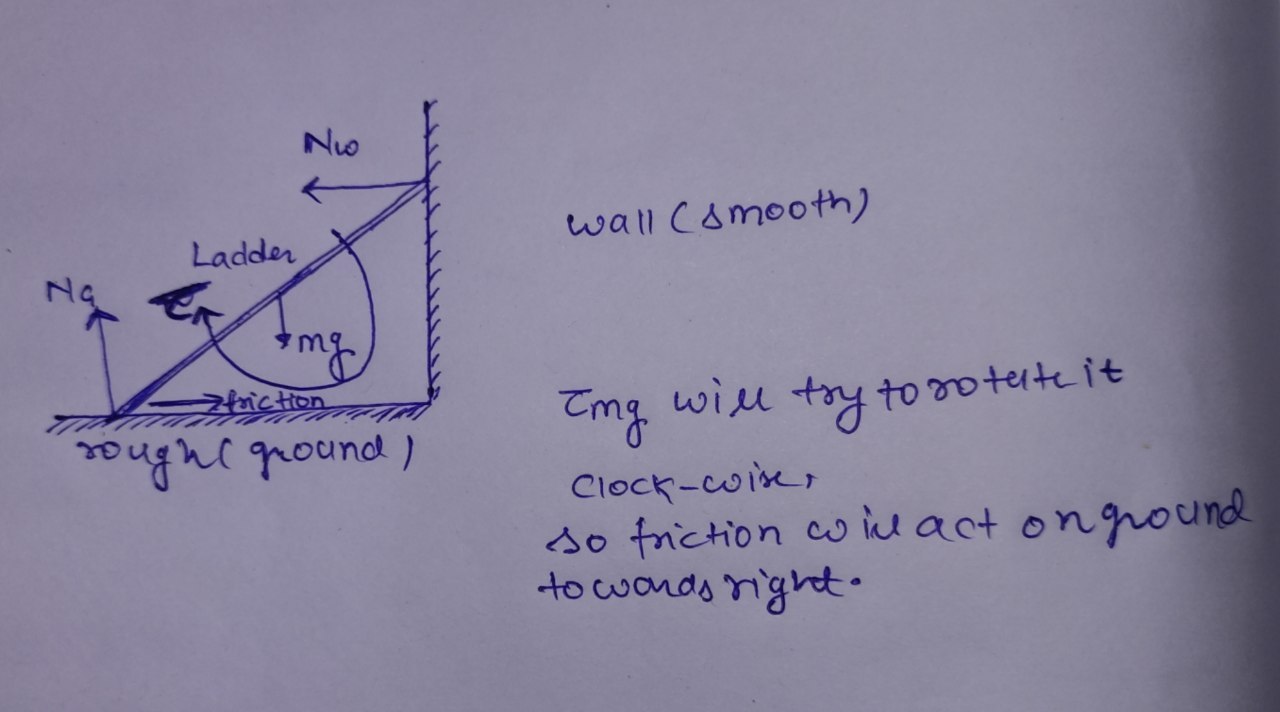 Nw
wall (smooth)
Ladder
Ng
τ
mg
friction
rough (ground)
τmg will try to rotate it
Clock-wise,
so friction will act on ground
towards right.